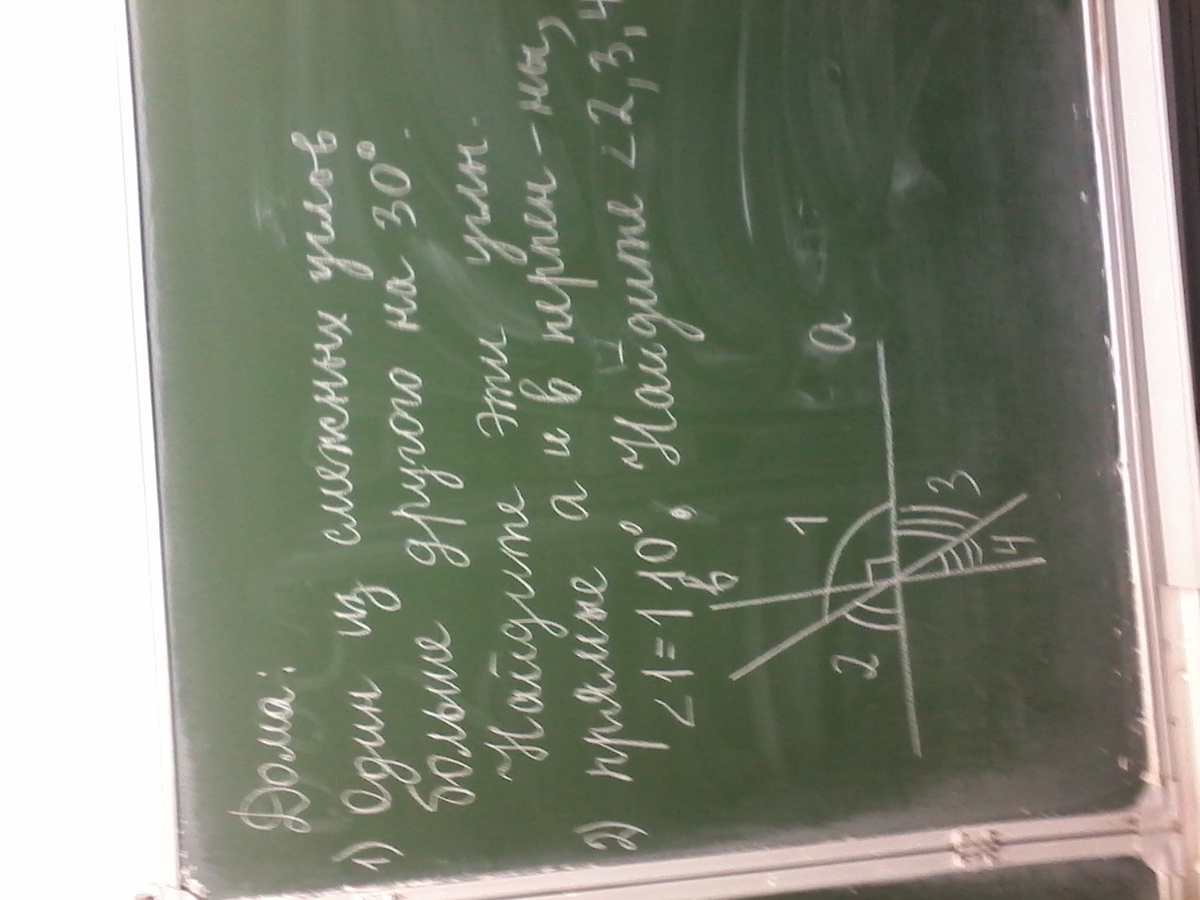 Дома:
1) Один из смежных углов
больше другого на 30°.
Найдите эти углы.
2) прямые а и в перпен-ны,
<1=110°, Найдите <2,3,4
в
а
1
2
3
4